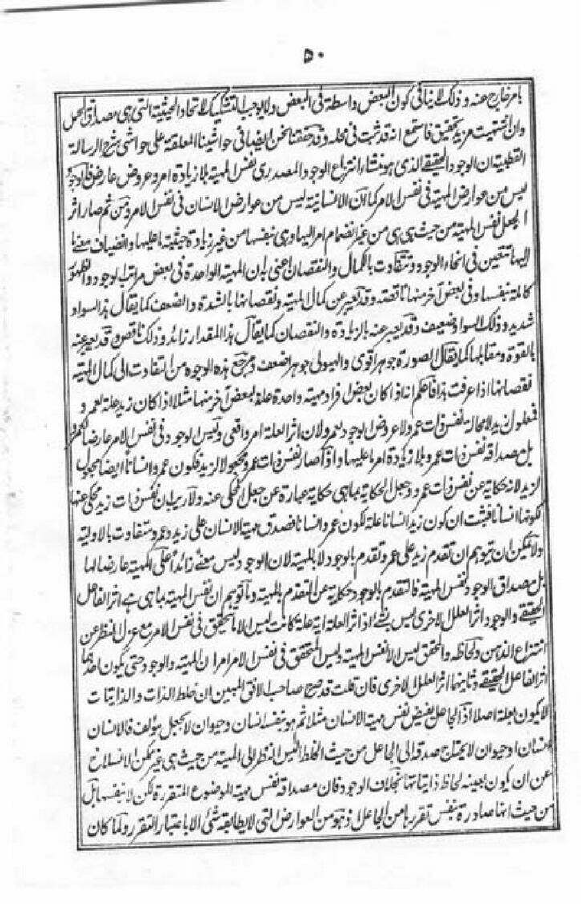 ٥٠
بامر خارج عنه و ذلك لاينافى كون البعض واسطة فى البعض ولا يوجب التشكيك لاتحاد الحيثية التى هى مصداق الحمل
وان اشتهيت مزيد تحقيق فاستمع انه قد ثبت فى محله وقد حققنا نحن ايضا فى حواشينا المعلقة على حواشى شرح الرسالة
القطبية ان الوجود الحقيقى الذى هو منشأ انتزاع الوجود المصدرى نفس المهية بلا زيادة امر وعروض عارض فالوجود
ليس من عوارض المهية فى نفس الامر كما ان الانسانية ليس من عوارض الانسان فى نفس الامر ومن ثم صار اثر
الجعل نفس المهية من حيث هى هى من غير انضمام امر اليها وهى بنفسها من غير زيادة حيثية عليها وانضياف معنى
اليها تتعين فى انحاء الوجود وتتفاوت بالكمال والنقصان اعنى بان المهية الواحدة فى بعض مراتب الوجود والظهور
كاملة بنفسها وفى بعض آخر منها ناقصة وقد يعبر عن كمال المهية ونقصانها بالشدة والضعف كما يقال هذا السواد
شديد وذلك السواد ضعيف وقد يعبر عنه بالزيادة والنقصان كما يقال هذا المقدار زائد وذلك ناقص وقد يعبر عنه
بالقوة ومقابلها كما يقال الصورة جوهر اقوى والهيولى جوهر اضعف ومرجع هذه الوجوه من التفاوت الى كمال المهية
ونقصانها اذا عرفت هذا فاعلم انه اذا كان بعض افراد مهية واحدة علة لبعض آخر منها مثلا اذا كان زيد علة لعمرو
فمعلول زيد لا محالة نفس ذات عمرو لا عروض الوجود لعمرو لان اثر العلة امر واقعى وليس الوجود فى نفس الامر عارضا لعمرو
بل مصداقه نفس ذات عمرو بلا زيادة امر عليها واذا كان نفس ذات عمرو مجعولا لزيد فكون عمرو انسانا ايضا مجعول
لزيد لانه حكاية عن نفس ذات عمرو وجعل الحكاية بما هى حكاية عبارة عن جعل المحكى عنه ولا ريب ان نفس ذات زيد محكى عنها
لكونها انسانا فيثبت ان كون زيد انسانا علة لكون عمرو انسانا فصدق مهية الانسان على زيد وعمرو متفاوت بالاولية
ولا يمكن ان يتوهم ان تقدم زيد على عمرو تقدم بالوجود لا بالمهية لان الوجود ليس معنى زائدا على المهية عارضا لها
بل مصداق الوجود نفس المهية فالتقدم بالوجود حكاية عن التقدم بالمهية وما يتوهم ان نفس المهية بما هى هى اثر الفاعل
الحقيقى والوجود اثر العلل الاخرى ليس بشئ اذ اثر العلة اية علة كانت ليس الا ما يتحقق فى نفس الامر مع عزل النظر عن
انتزاع الذهن ولحاظه والمتحقق ليس الا نفس المهية وليس المتحقق فى نفس الامر امران المهية والوجود حتى يكون احدهما
اثر الفاعل الحقيقى وثانيهما اثر العلل الاخرى فان قلت قد صرح صاحب الافق المبين ان خلط الذات والذاتيات
لا يكون بعلة اصلا اذ الجاعل يفيض نفس مهية الانسان مثلا ثم هو بنفسه انسان وحيوان لا بجعل مؤلف فالانسان
انسان او حيوان لا يحتاج صدقه الى الجاعل من حيث الخلط اليس النظر الى المهية من حيث هى غير ممكن الانسلاخ
عن ان يكون بعينه لحاظ ذاتياتها بخلاف الوجود فان مصداقه نفس مهية الموضوع المتقررة لكن لا بنفسها بل
من حيث انها صادرة بنفس تقررها من الجاعل اذ هو من العوارض التى لا يطابقه شئ الا باعتبار التقرر ولما كان